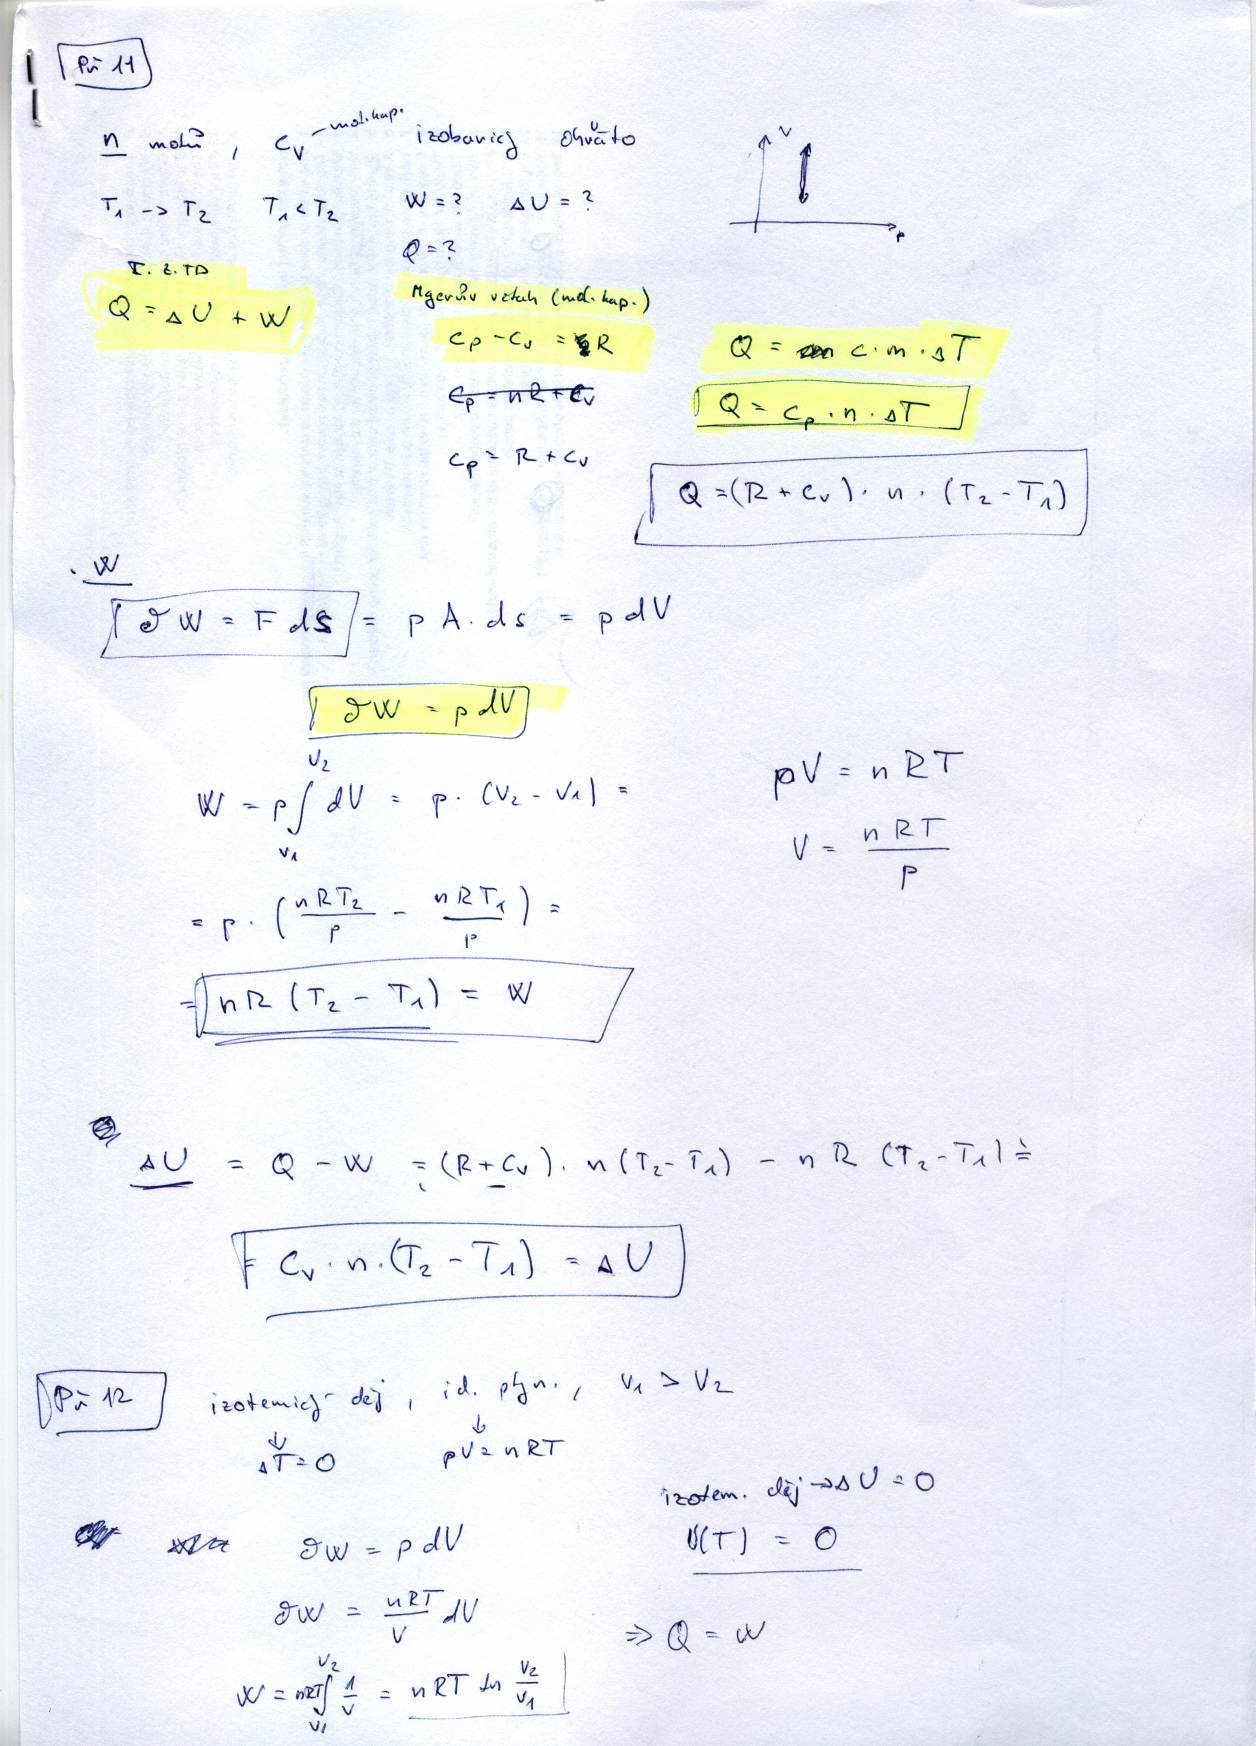 Př 11
n molů, C_V – mol. kap. izobaricky ohřáto
T₁ → T₂ T₁ < T₂ W = ? ΔU = ?
Q = ?
V
p
I. z. TD
Q = ΔU + W
Mayerův vztah (mol. kap.)
C_p - C_V = R
C_p = nR + C_V
C_p = R + C_V
Q = c · m · ΔT
Q = C_p · n · ΔT
Q = (R + C_V) · n · (T₂ - T₁)
· W
∂W = F ds = p A · ds = p dV
∂W = p dV
W = p ∫_{V₁}^{V₂} dV = p · (V₂ - V₁) =
= p · (nRT₂/p - nRT₁/p) =
= nR (T₂ - T₁) = W
pV = nRT
V = nRT/p
ΔU = Q - W = (R + C_V) · n (T₂ - T₁) - nR (T₂ - T₁) =
= C_V · n · (T₂ - T₁) = ΔU
Př 12 izotemický děj, id. plyn., V₁ > V₂
↓ ΔT = 0 ↓ pV = nRT
izotem. děj → ΔU = 0
U(T) = 0
∂W = p dV
∂W = nRT/V dV
⇒ Q = W
W = nRT ∫_{V₁}^{V₂} 1/V = nRT ln V₂/V₁